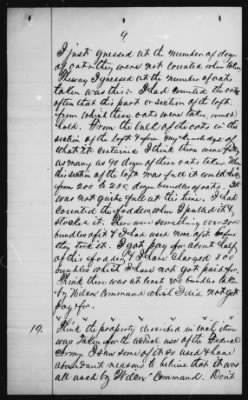 9
I just guessed at the number of dozen
of oats they were not counted when taken
The way I guessed at the number of oats
taken was this: I had counted the oats
often that this part or section of the loft
from which these oats were taken, would
hold. From the bulk of the oats in this
section of the loft & from my knowledge of
what it contained I think there were fully
as many as 90 dozen of these oats taken. When
this section of the loft was full it would hold
from 200 to 250 dozen bundles of oats. It
was not quite full at this time. I had
counted the fodder when I pulled it &
stacked it. There were something over 800
bundles of it & I had used none of it before
they took it. I got pay for about half
of this fodder & I have charged 800
bundles which I have not got paid for.
I think there was at least 800 bundles taken
by Wilder's Command which I did not get
pay for.
19. I think the property described in each item
was taken for the actual use of the Federal
Army. I saw some of it so used & have
abundant reasons to believe that it was
all used by Wilder's Command. Don't